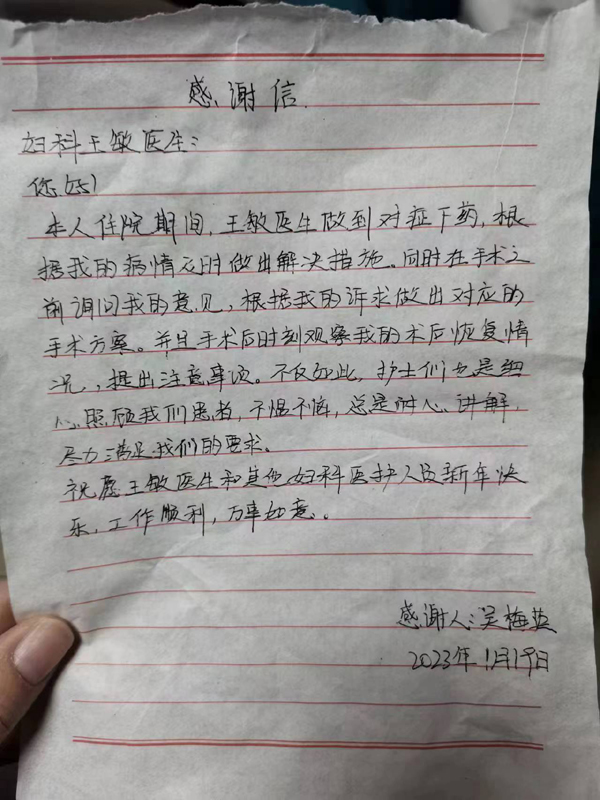 感谢信
妇科王敏医生:
您好!
本人住院期间,王敏医生做到对症下药,根
据我的病情及时做出解决措施。同时在手术之
前询问我的意见,根据我的诉求做出对应的
手术方案。并且手术后时刻观察我的术后恢复情
况,提出注意事项。不仅如此,护士们也是细
心照顾我们患者,不愠不恼,总是耐心讲解,
尽力满足我们的要求。
祝愿王敏医生和其他妇科医护人员新年快
乐,工作顺利,万事如意。
感谢人:吴梅英
2023年1月19日